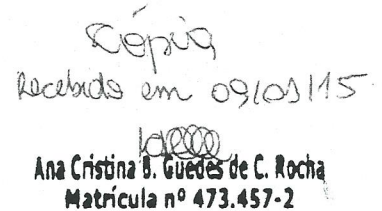 Cópia
Recebido em 09/01/15
Ana Cristina B. Guedes de C. Rocha
Matrícula nº 473.457-2